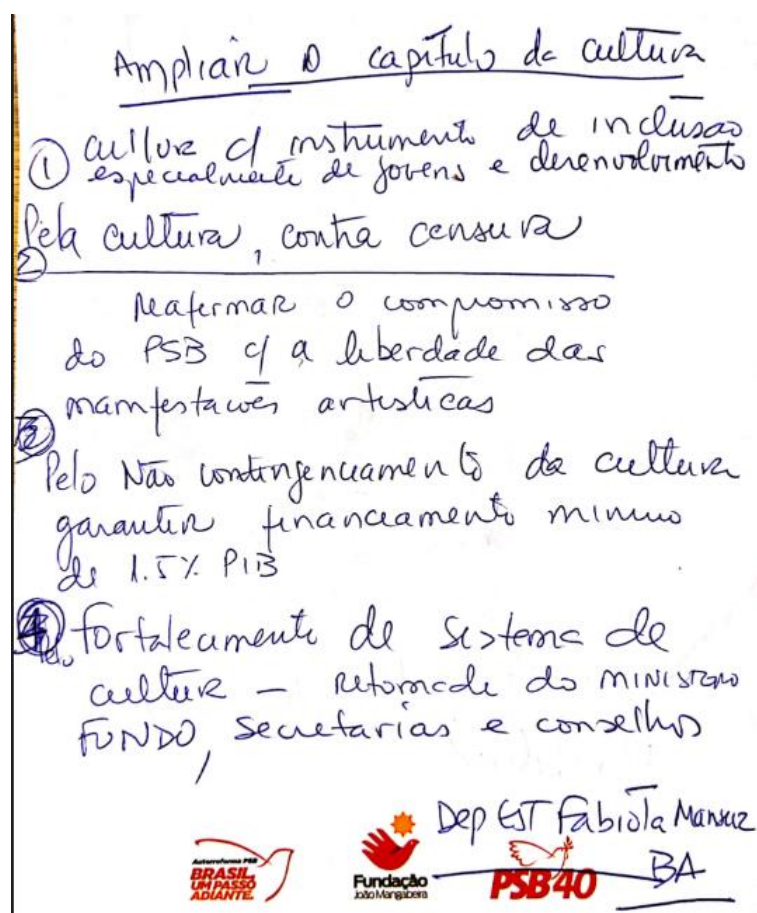 Ampliar o capítulo da cultura
① cultura c/ instrumento de inclusão
especialmente de jovens e desenvolvimento
Pela cultura, contra censura
②
Reafirmar o compromisso
do PSB c/ a liberdade das
manifestações artísticas
③
Pelo Não contingenciamento da cultura
garantir financiamento mínimo
de 1.5% PIB
④ Fortalecimento de sistema de
cultura – retomada do MINISTÉRIO
FUNDO, Secretarias e conselhos
Dep EST Fabíola Mansur
BA
Autorreforma PSB
BRASIL,
UM PASSO
ADIANTE.
Fundação
João Mangabeira
PSB 40